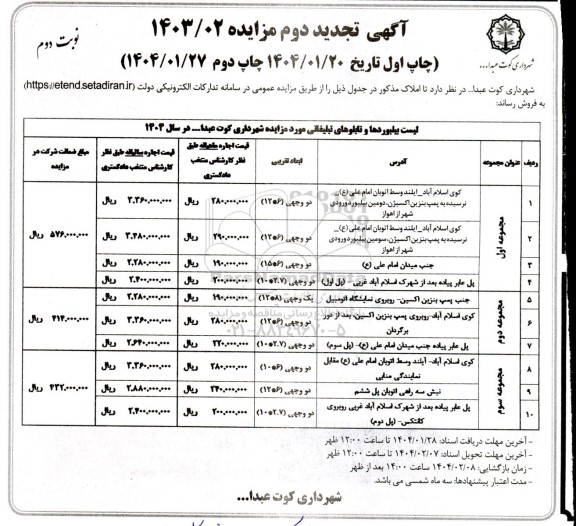 آگهی تجدید دوم مزایده ۱۴۰۳/۰۲
نوبت دوم
(چاپ اول تاریخ ۱۴۰۴/۰۱/۲۰ چاپ دوم ۱۴۰۴/۰۱/۲۷)
شهرداری کوت عبدا...
شهرداری کوت عبدا... در نظر دارد تا املاک مذکور در جدول ذیل را از طریق مزایده عمومی در سامانه تدارکات الکترونیکی دولت (https://etend.setadiran.ir)
به فروش رساند:
لیست بیلبوردها و تابلوهای تبلیغاتی مورد مزایده شهرداری کوت عبدا... در سال ۱۴۰۳
ردیف عنوان مجموعه آدرس ابعاد تقریبی قیمت اجاره ماهیانه طبق نظر کارشناس منتخب دادگستری قیمت اجاره سالیانه طبق نظر کارشناس منتخب دادگستری مبلغ ضمانت شرکت در مزایده
مجموعه اول ۵۷۶.۰۰۰.۰۰۰ ریال
۱ کوی اسلام آباد_ ایلند وسط اتوبان امام علی (ع)_ نرسیده به پمپ بنزین اکسیژن، دومین بیلبورد ورودی شهر از اهواز دو وجهی (۶*۱۲) ۲۸۰.۰۰۰.۰۰۰ ریال ۳.۳۶۰.۰۰۰.۰۰۰ ریال
۲ کوی اسلام آباد_ ایلند وسط اتوبان امام علی (ع)_ نرسیده به پمپ بنزین اکسیژن، سومین بیلبورد ورودی شهر از اهواز دو وجهی (۶*۱۲) ۲۹۰.۰۰۰.۰۰۰ ریال ۳.۴۸۰.۰۰۰.۰۰۰ ریال
۳ جنب میدان امام علی (ع) دو وجهی ۱۹۰.۰۰۰.۰۰۰ ریال ۲.۲۸۰.۰۰۰.۰۰۰ ریال
۴ پل عابر پیاده بعد از شهرک اسلام آباد غربی - (پل اول) دو وجهی (۲.۷*۱۰) ۲۰۰.۰۰۰.۰۰۰ ریال ۲.۴۰۰.۰۰۰.۰۰۰ ریال
مجموعه دوم ۴۱۴.۰۰۰.۰۰۰ ریال
۵ جنب پمپ بنزین اکسین- روبروی نمایشگاه اتومبیل یک وجهی (۸*۱۲) ۱۹۰.۰۰۰.۰۰۰ ریال ۲.۲۸۰.۰۰۰.۰۰۰ ریال
۶ کوی اسلام آباد-روبروی پمپ بنزین اکسین، بعد از دور برگردان دو وجهی (۶*۱۲) ۲۸۰.۰۰۰.۰۰۰ ریال ۳.۳۶۰.۰۰۰.۰۰۰ ریال
۷ پل عابر پیاده جنب میدان امام علی (ع)- (پل سوم) دو وجهی (۲.۷*۱۰) ۲۲۰.۰۰۰.۰۰۰ ریال ۲.۶۴۰.۰۰۰.۰۰۰ ریال
مجموعه سوم ۴۳۲.۰۰۰.۰۰۰ ریال
۸ کوی اسلام آباد- آیلند وسط اتوبان امام علی (ع) مقابل نمایندگی منابی دو وجهی (۶*۱۰) ۲۸۰.۰۰۰.۰۰۰ ریال ۳.۳۶۰.۰۰۰.۰۰۰ ریال
۹ نبش سه راهی اتوبان پل ششم دو وجهی (۶*۱۲) ۲۴۰.۰۰۰.۰۰۰ ریال ۲.۸۸۰.۰۰۰.۰۰۰ ریال
۱۰ پل عابر پیاده بعد از شهرک اسلام آباد غربی روبروی کانتکس- (پل دوم) دو وجهی (۲.۷*۱۰) ۲۰۰.۰۰۰.۰۰۰ ریال ۲.۴۰۰.۰۰۰.۰۰۰ ریال
۰۲۱-۸۸۳۴۹۶۷۰-۵
- آخرین مهلت دریافت اسناد: ۱۴۰۴/۰۱/۲۸ تا ساعت ۱۲:۰۰ ظهر
- آخرین مهلت تحویل اسناد: ۱۴۰۴/۰۲/۰۷ تا ساعت ۱۲:۰۰ ظهر
- زمان بازگشایی: ۱۴۰۴/۰۲/۰۸ ساعت ۱۴:۰۰ بعد از ظهر
- مدت اعتبار پیشنهادها: سه ماه شمسی می باشد.
شهرداری کوت عبدا...